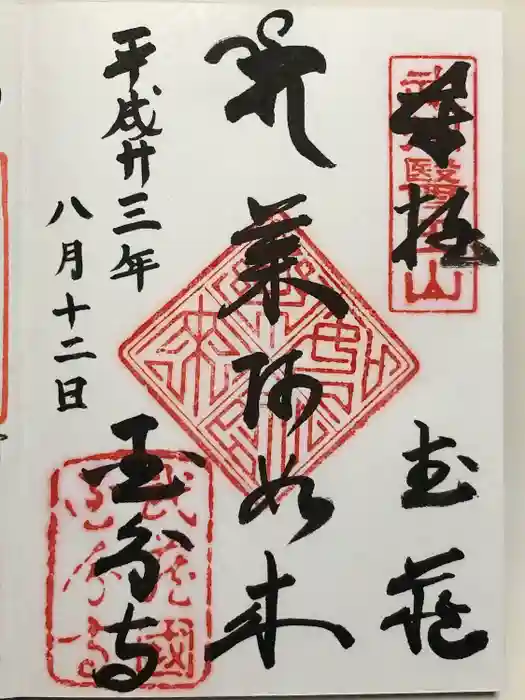 奉拝 武蔵
薬師如来
平成廿三年
八月十二日
国分寺